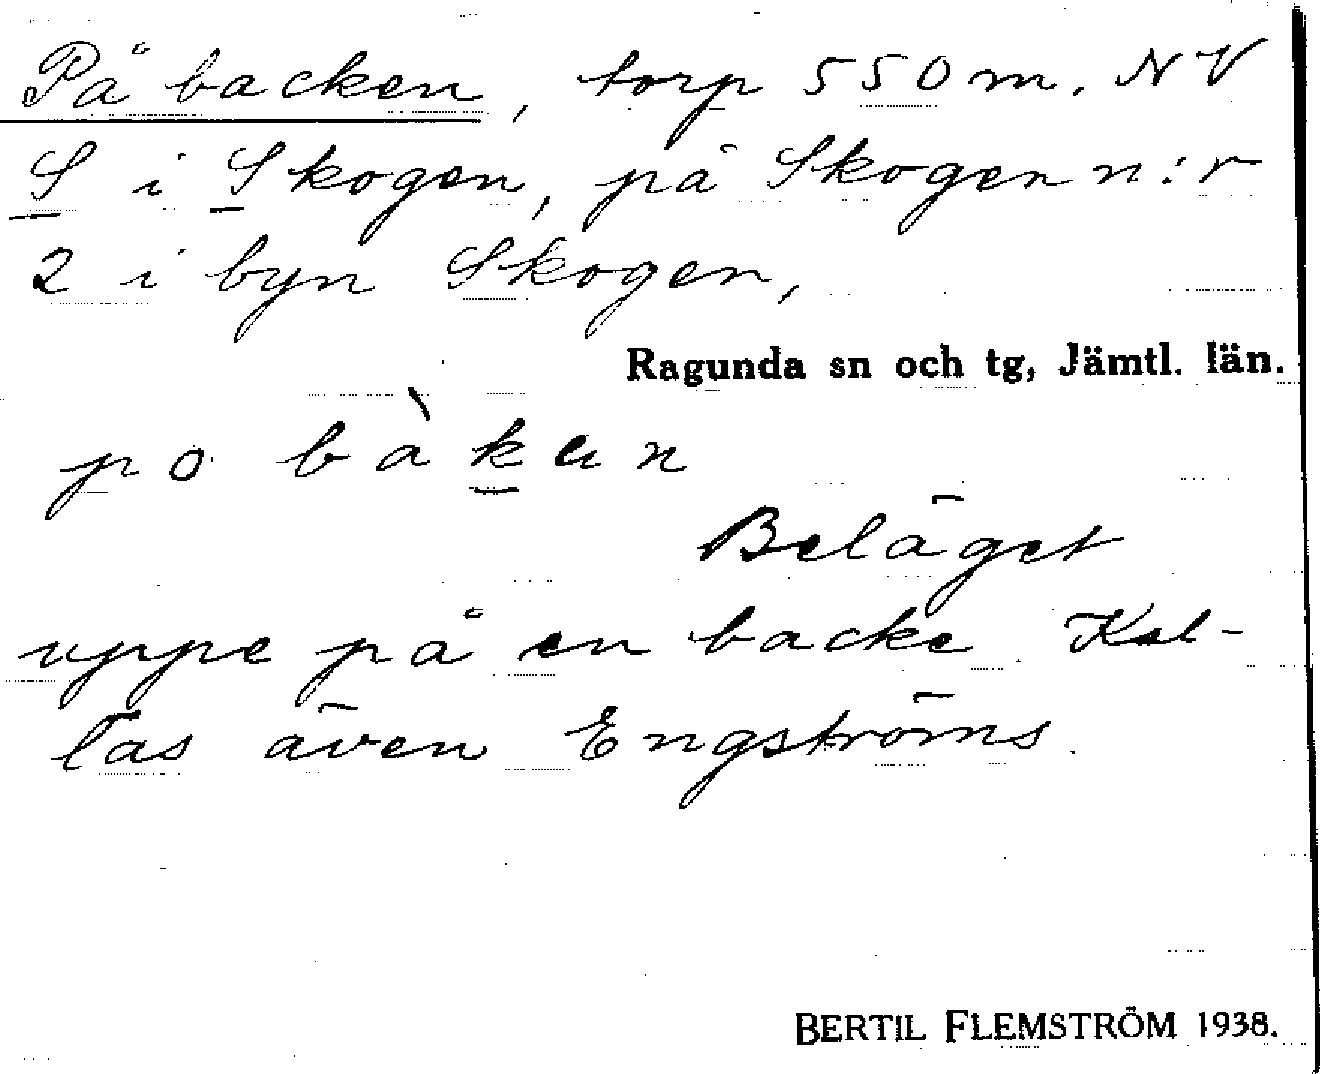 På backen, torp 550 m. NV
S i Skogen, på Skogen n:r
2 i byn Skogen,
Ragunda sn och tg, Jämtl. län.
po bàken
Beläget
uppe på en backe Kal-
las även Engströms.
BERTIL FLEMSTRÖM 1938.